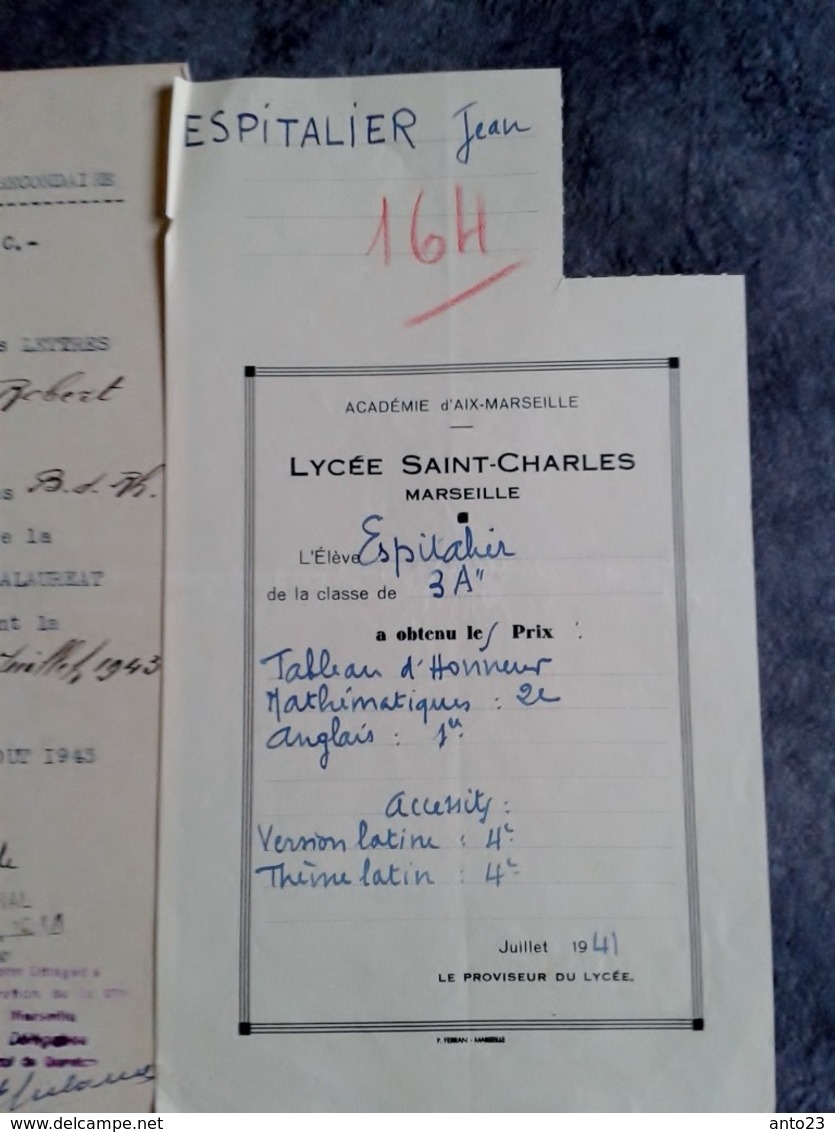 ESPITALIER Jean
16H
ECONDAIRE
C.-
s LETTRES
Robert
s B.d.Rh.
e la
ALAUREAT
nt la
Juillet 1943
OUT 1943
ACADÉMIE d'AIX-MARSEILLE
LYCÉE SAINT-CHARLES
MARSEILLE
L'Élève Espitalier
de la classe de 3A"
a obtenu les Prix :
Tableau d'Honneur
Mathématiques : 2e
Anglais : 1er
Accessits :
Version latine : 4e
Thème latin : 4e
Juillet 1941
LE PROVISEUR DU LYCÉE.
P. FERRAN - MARSEILLE
Marseille
www.delcampe.net
anto23